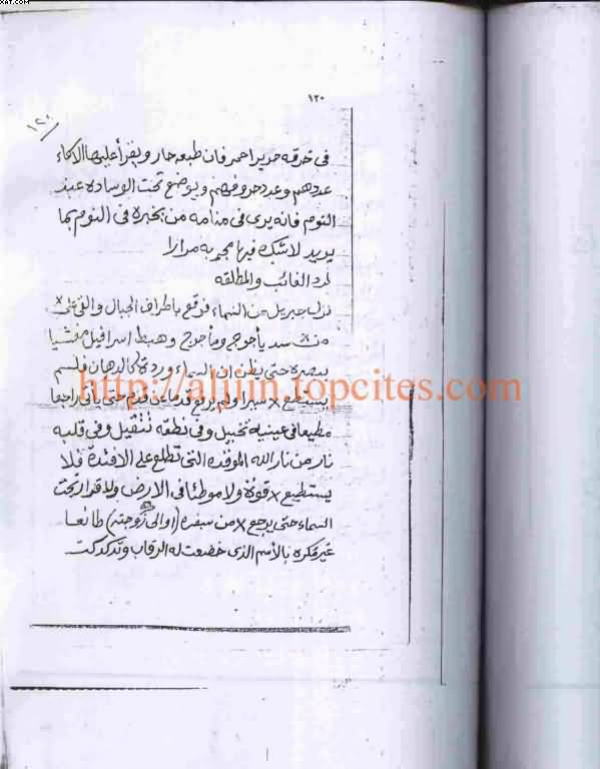 XAT.COM
١٢٠
١٢٠
فى خرقه حرير احمر فان طبعه حار ويقرأ عليها الاسماء
عددهم وعدد حروفهم ويوضع تحت الوساده عند
النوم فانه يرى فى منامه من يخبره فى النوم بما
يريد لاشك فيها مجربه مرارا
لرد الغائب والمطلقه
نزل جبريل من السماء فوقع باطراف الجبال والقى على x
من سد يأجوج ومأجوج وهبط اسرافيل مغشيا
ببصره حتى يظن ان السماء وردة كالدهان فلسم
http://aljjin.topcites.com
x صبرا حتى يأتى راجعا
مطيعا فى عينيه تخييل وفى نطقه تثقيل وفى قلبه
نار من نار الله الموقده التى تطلع على الافئدة فلا
يستطيع x قوة ولا موطئا فى الارض ولا قرار تحت
السماء حتى يرجع x من سفره (او الى زوجته) طائعا
غير مكره بالاسم الذى خضعت له الرقاب وتدكدكت